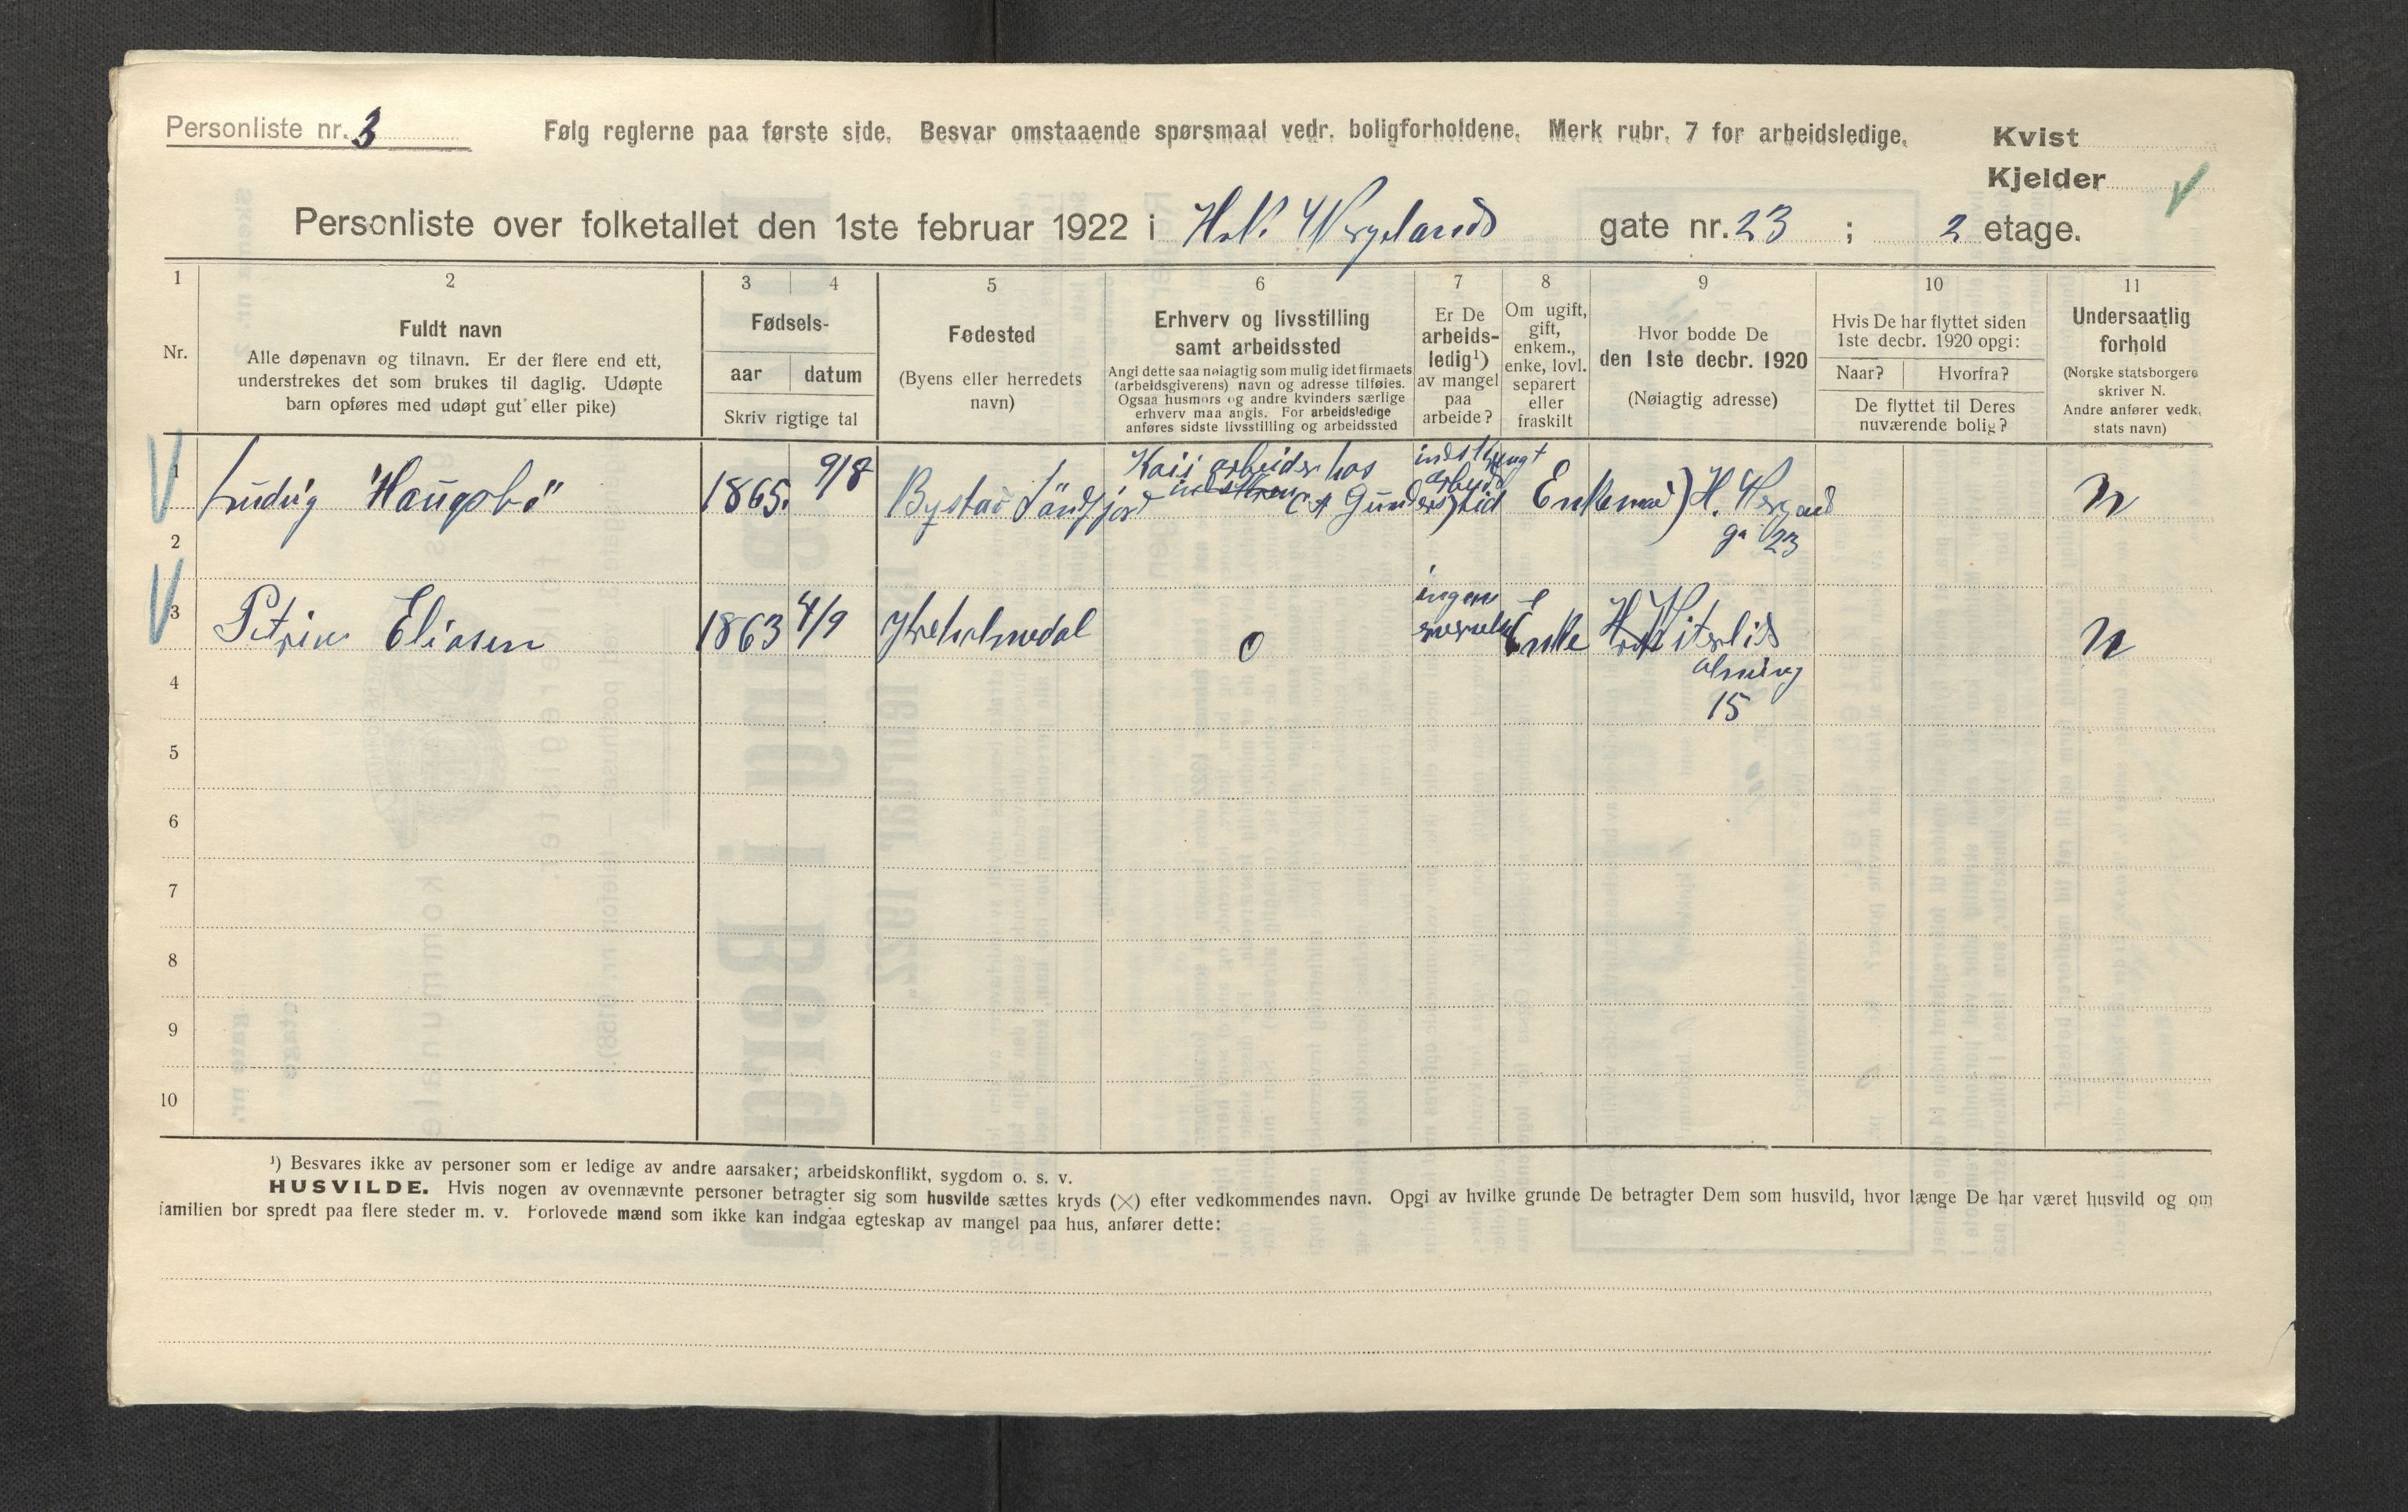 Personliste nr. 3
Følg reglerne paa første side. Besvar omstaaende spørsmaal vedr. boligforholdene. Merk rubr. 7 for arbeidsledige.
Kvist
Kjelder
Personliste over folketallet den 1ste februar 1922 i Wergelands gate nr. 23 ; 2 etage.
1 2 3 4 5 6 7 8 9 10 11
Nr.
Fuldt navn
Alle døpenavn og tilnavn. Er der flere end ett,
understrekes det som brukes til daglig. Udøpte
barn opføres med udøpt gut eller pike)
Fødsels-
aar datum
Skriv rigtige tal
Fødested
(Byens eller herredets
navn)
Erhverv og livsstilling
samt arbeidssted
Angi dette saa nøiagtig som mulig idet firmaets
(arbeidsgiverens) navn og adresse tilføies.
Ogsaa husmors og andre kvinders særlige
erhverv maa angis. For arbeidsledige
anføres sidste livsstilling og arbeidssted
Er De
arbeids-
ledig¹)
av mangel
paa
arbeide?
Om ugift,
gift,
enkem.,
enke, lovl.
separert
eller
fraskilt
Hvor bodde De
den 1ste decbr. 1920
(Nøiagtig adresse)
Hvis De har flyttet siden
1ste decbr. 1920 opgi:
Naar? Hvorfra?
De flyttet til Deres
nuværende bolig?
Undersaatlig
forhold
(Norske statsborgere
skriver N.
Andre anfører vedk.
stats navn)
1 Ludvig Haugsbö 1865. 9/8 Bystad Söndfjord
Kaiarbeider hos
Enkemand
N
23
2
3 Petrine Eliasen 1863 4/9 Ytreholmedal
0
ingen
Enke
N
alming
15
4
5
6
7
8
9
10
¹) Besvares ikke av personer som er ledige av andre aarsaker; arbeidskonflikt, sygdom o. s. v.
HUSVILDE. Hvis nogen av ovennævnte personer betragter sig som husvilde sættes kryds (×) efter vedkommendes navn. Opgi av hvilke grunde De betragter Dem som husvild, hvor længe De har været husvild og om
familien bor spredt paa flere steder m. v. Forlovede mænd som ikke kan indgaa egteskap av mangel paa hus, anfører dette: